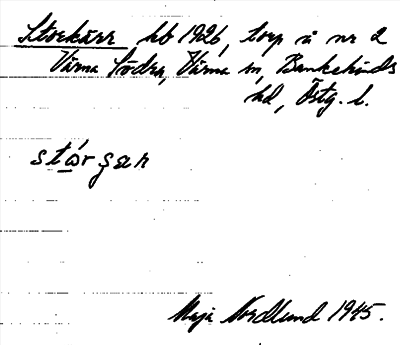 Storkärr hb 1926, torp å nr 2
Värna Södra, Värna sn, Bankekinds
hd, Östg. l.
stó̲rʂan
Maja Nordlund 1945.